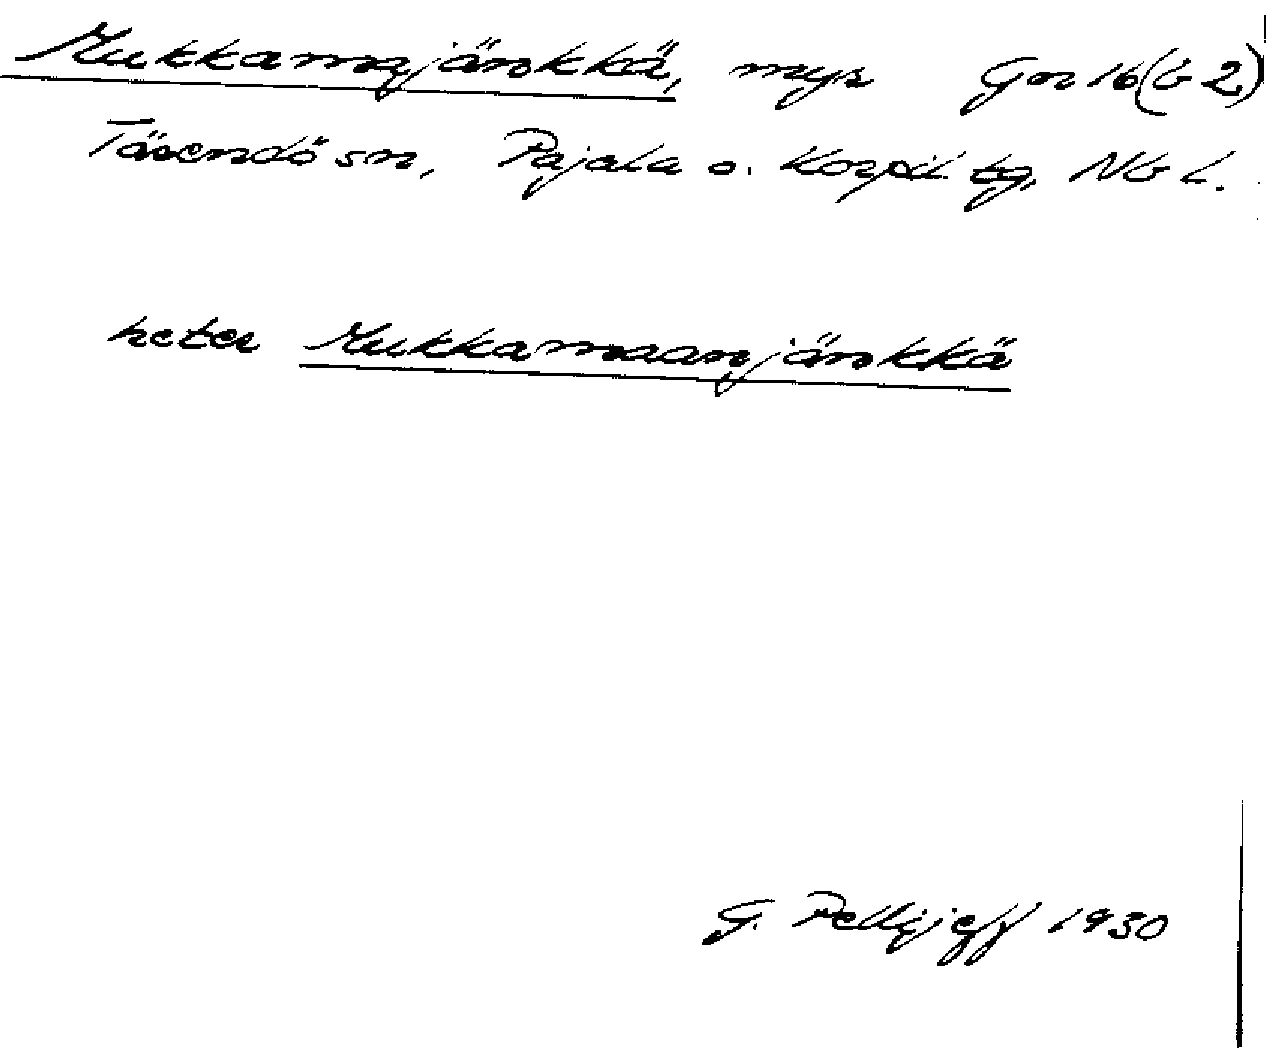 Mukkamajänkkä, myr Gn 16 (b 2)
Tärendö sn, Pajala o. Korpil. tg, Nb l.
heter Mukkamaanjänkkä
G. Pellijeff 1930